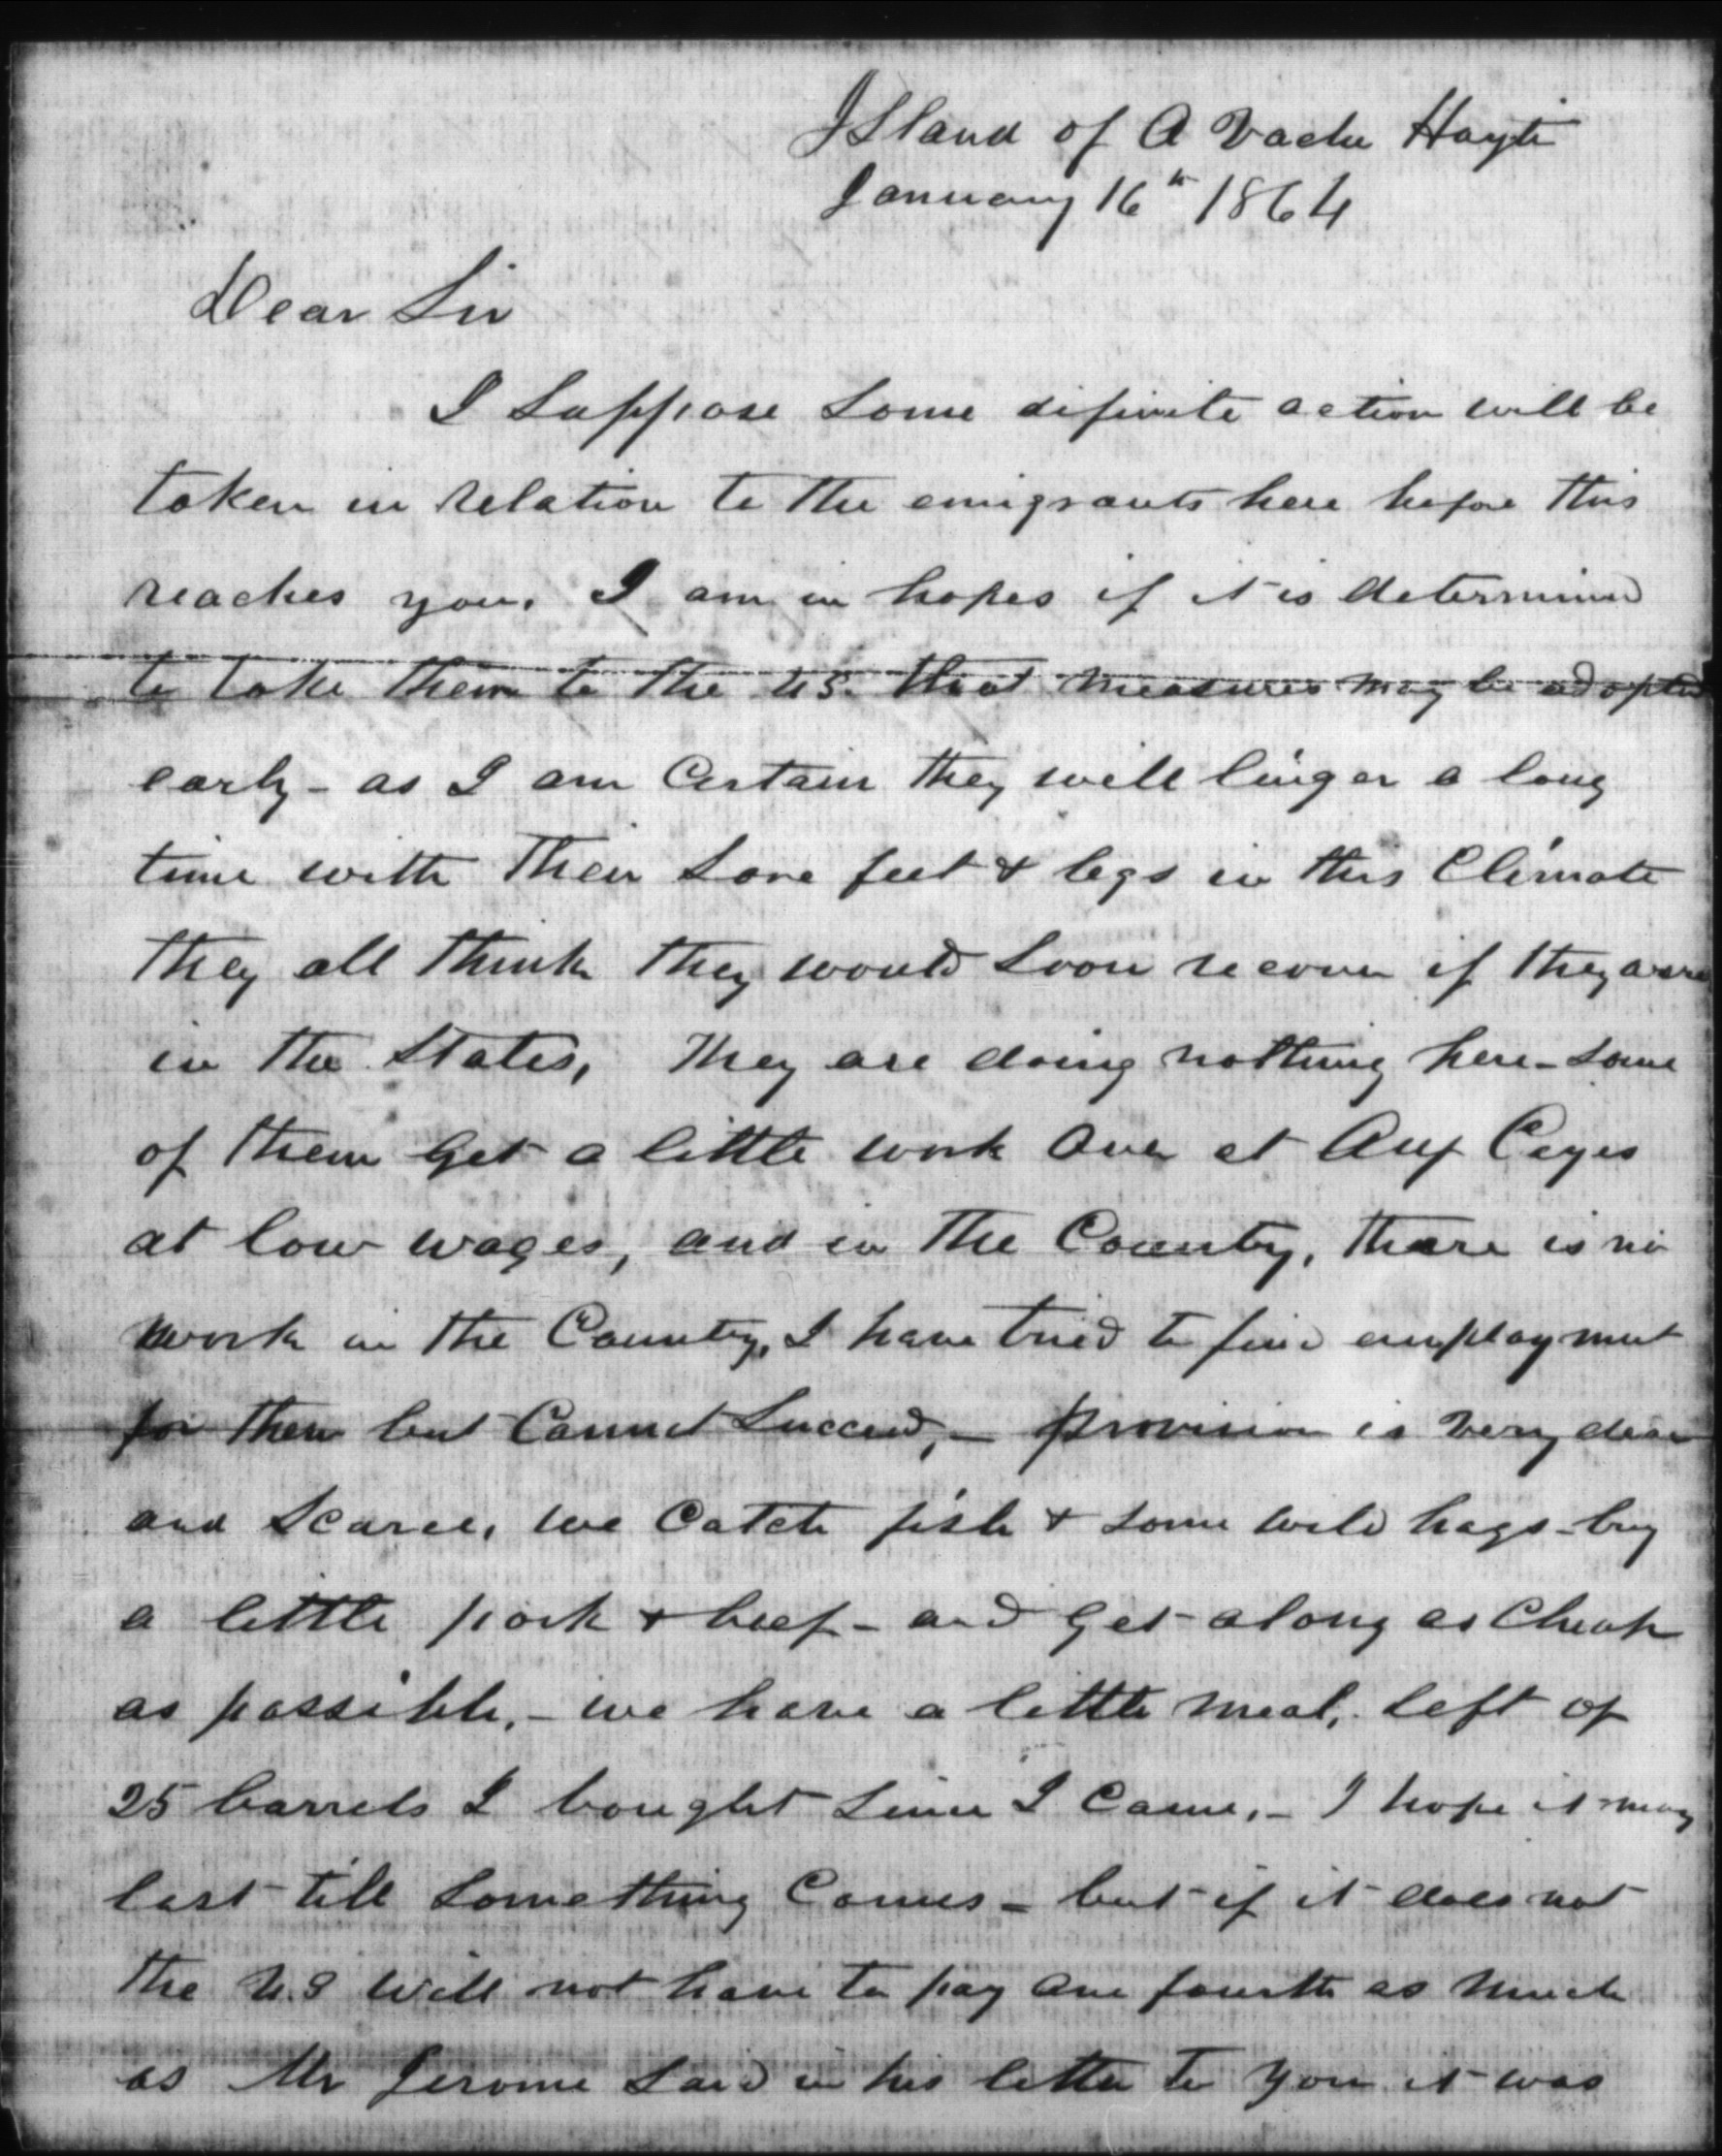 Island of A Vache Hayti
January 16th 1864
Dear Sir
I Suppose Some difinite action will be
taken in relation to the emigrants here before this
reaches you. I am in hopes if it is determined
to take them to the U.S. that measures may be adopted
early - as I am Certain they will linger a long
time with their Sore feet & legs in this Climate
they all think they would Soon recover if they were
in the States, They are doing nothing here - Some
of them get a little work over at Aux Cayes
at low wages, and in the Country, there is no
work in the Country, I have tried to find employment
for them but Cannot Succeed, - provision is very dear
and Scarce, we Catch fish & some wild hogs - buy
a little pork & beef - and get along as Cheap
as possible, - we have a little meal, left of
25 barrels I bought Since I Came, - I hope it may
last till Something Comes - but if it does not
the U.S will not have to pay one fourth as much
as Mr Jerome Said in his letter to you it was